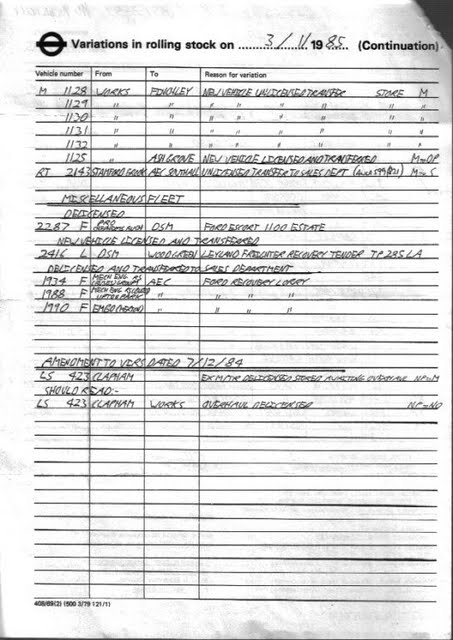 Variations in rolling stock on 3/11 1985 (Continuation)
Vehicle number From To Reason for variation
M 1128 WORKS FINCHLEY NEW VEHICLE UNLICENSED TRANSFER STORE M
1129 " " " " " " " "
1130 " " " " " " " "
1131 " " " " " " " "
1132 " " " " " " " "
1125 " ASH GROVE NEW VEHICLE LICENSED AND TRANSFERRED M=OP
RT 2143 STAMFORD BROOK AEC SOUTHALL UNLICENSED TRANSFER TO SALES DEPT M=S
MISCELLANEOUS FLEET
DELICENSED
2287 F DSM FORD ESCORT 1100 ESTATE
NEW VEHICLE LICENSED AND TRANSFERRED
2416 L DSM WOOD GREEN LEYLAND FREIGHTER RECOVERY TENDER TP285LA
DELICENSED AND TRANSFERRED TO SALES DEPARTMENT
1934 F MECH ENG AEC FORD RECOVERY LORRY
1988 F MECH ENG UPTON PARK " " "
1990 F " " "
AMENDMENT TO VIRS DATED 7/12/84
LS 423 CLAPHAM EX M/TR DELICENSED STORED AWAITING OVERHAUL NP=M
SHOULD READ:-
LS 423 CLAPHAM WORKS OVERHAUL DELICENSED NP=NO
408/69(2) (500 3/79 121/1)